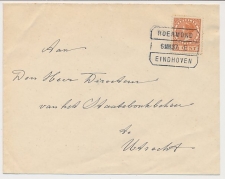 ROERMOND
EINDHOVEN
Aan
Den Heer Directeur
van het Staatsboschbeheer
te
Utrecht